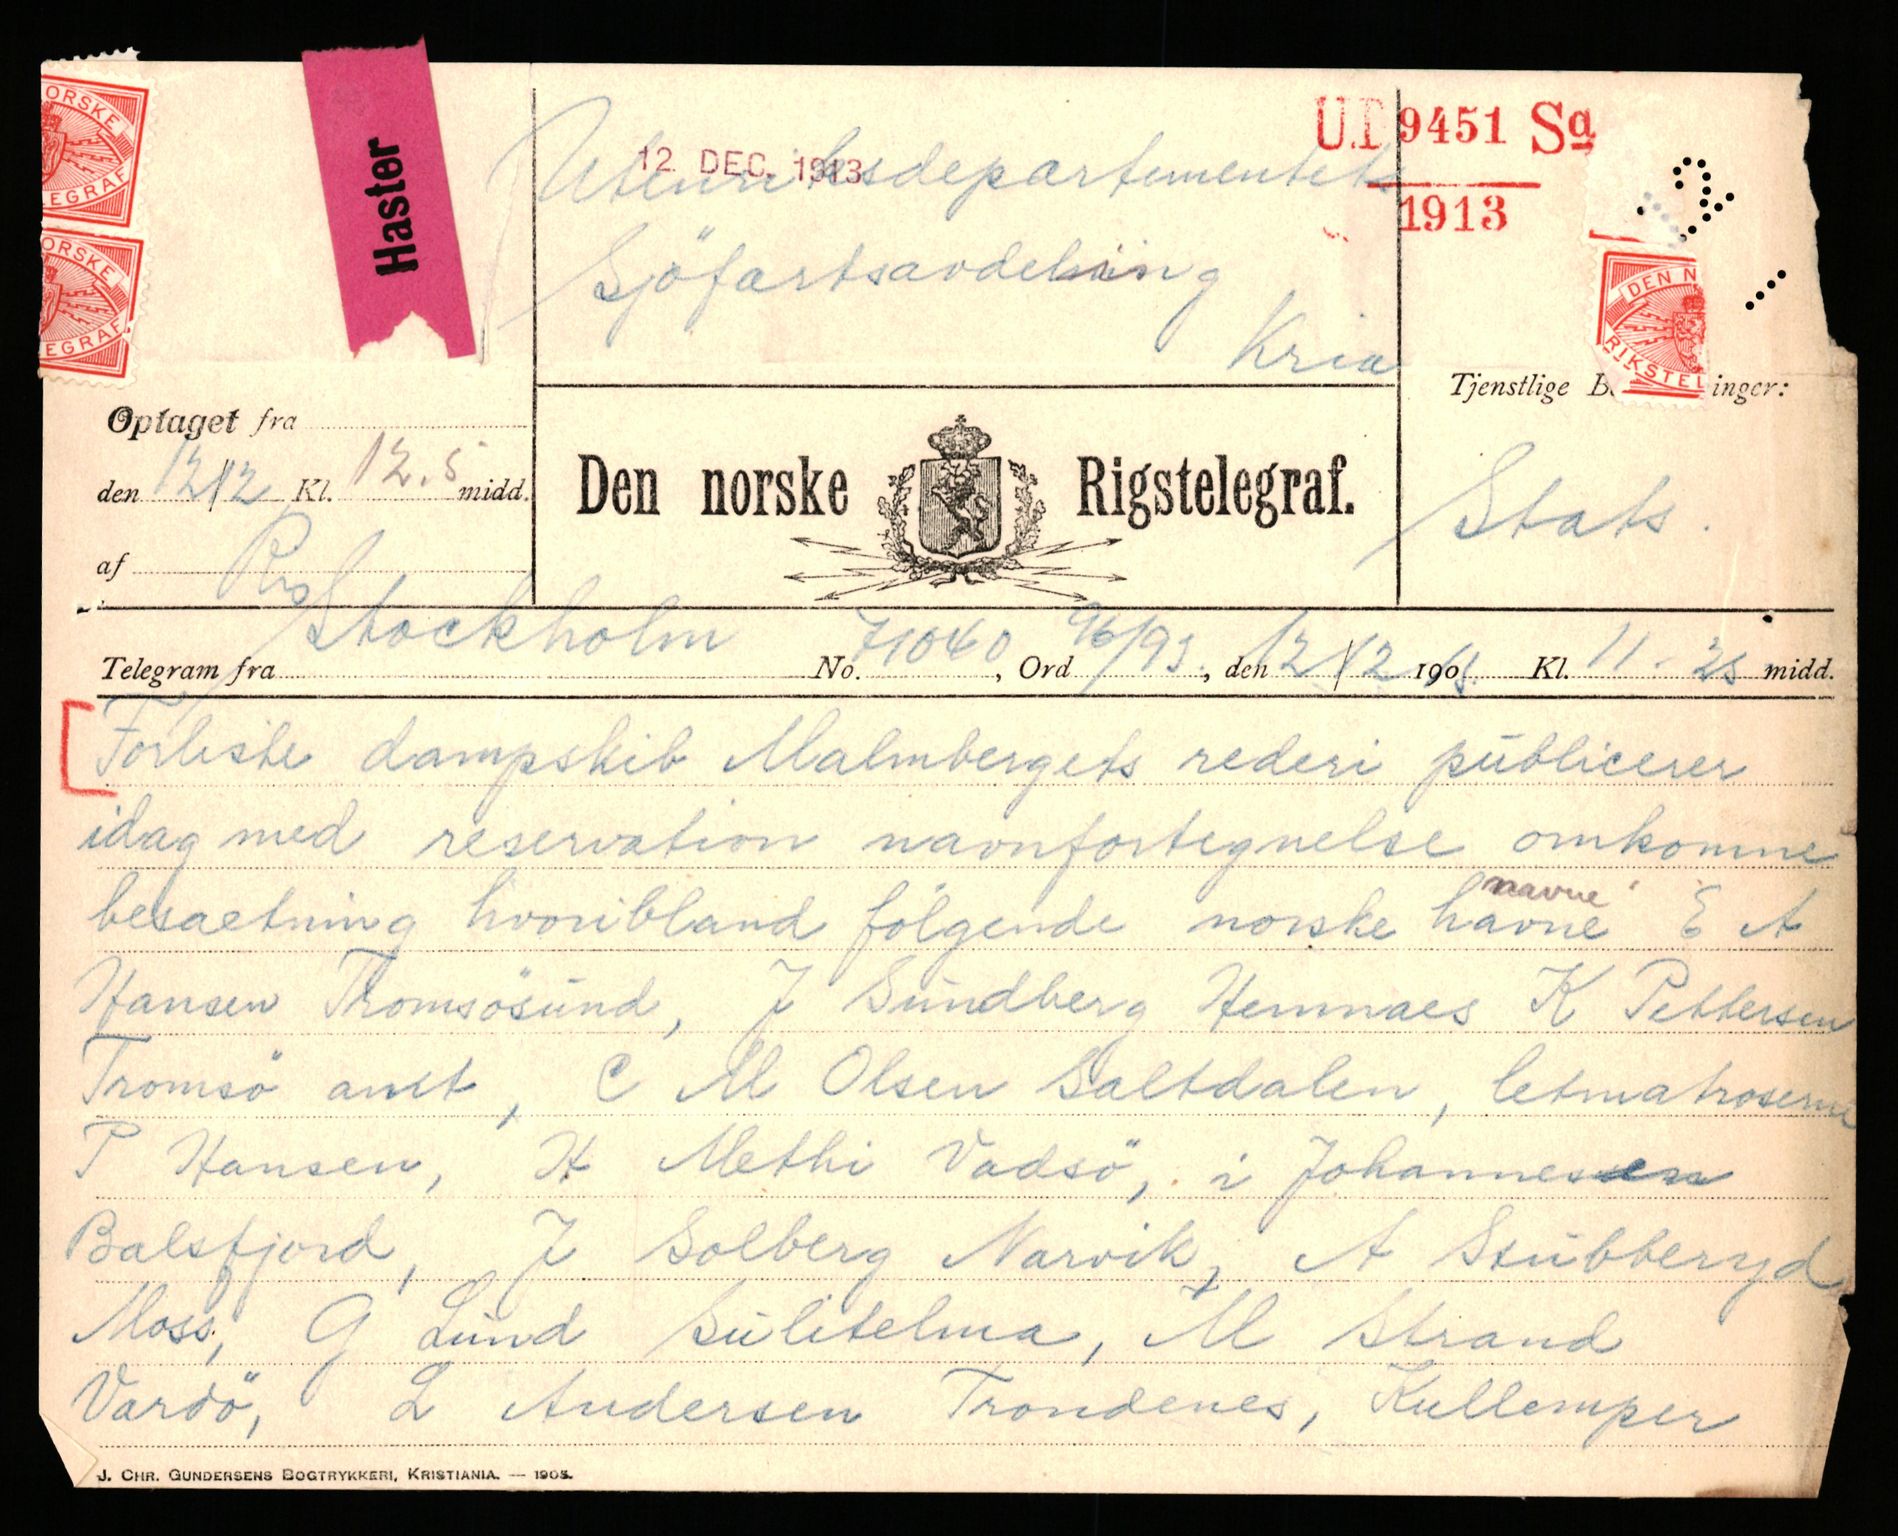 ORSKE
LEGRAF
ORSKE
EGRAF
Haster
12 DEC. 1913
U.D 9451 Sa
1913
Utenriksdepartementets
Sjöfartsavdeling
Kria
DEN N
RIKSTEL
Tjenstlige B inger:
Optaget fra
den 12/12 Kl. 12.5 midd.
af
Den norske Rigstelegraf.
Stats.
Telegram fra Stockholm No. 71060, Ord 96/93, den 12/12 190 Kl. 11.25 midd.
Forliste dampskib Malmbergets rederi publicerer
idag med reservation navnfortegnelse omkomne
besaetning hvoribland følgende norske havne E A
navne
Hansen Tromsösund, J Sundberg Hemnaes K Pettersen
Tromsö amt, C M Olsen Saltdalen, letmatroserne
P Hansen, H Methi Vadsö, i Johannesen
Balsfjord, J Solberg Narvik, A Stubberyd
Moss, G Lund Sulitelma, M Strand
Vardö, L Andersen Trondenes, Kullemper
J. CHR. GUNDERSENS BOGTRYKKERI, KRISTIANIA. — 1905.